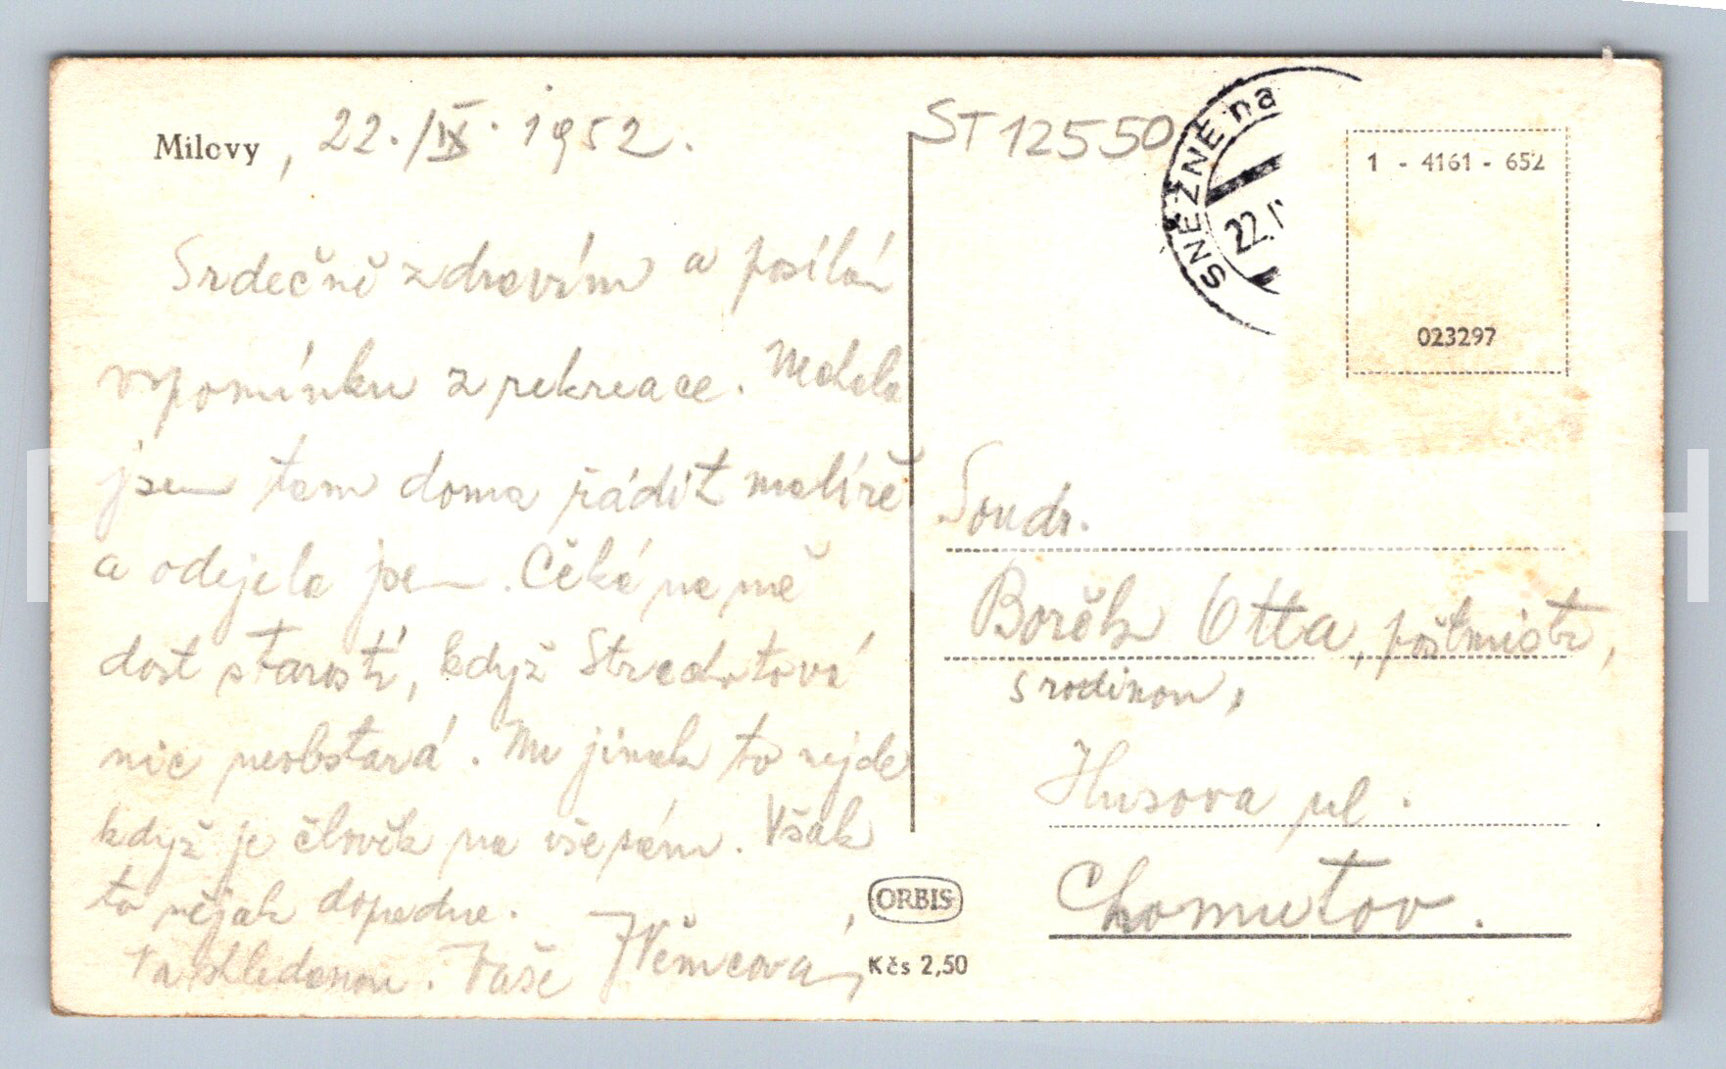 Milovy, 22./IX. 1952.
Srdečně zdravím a posílám
vzpomínku z rekreace. Nechala
jsem tam doma řádit malíře
a odjela jsem. Čeká na mě
dost starostí, když
nic neobstará. No jinak to nejde
když je člověk na vše sám. Však
to nějak dopadne.
Na shledanou. Vaše Němcová,
ST 12550
SNĚŽNÉ na
22.I
1 - 4161 - 652
023297
Soudr.
Borěk Otta, poštmistr,
s rodinou,
Husova ul.
Chomutov.
ORBIS
Kčs 2,50